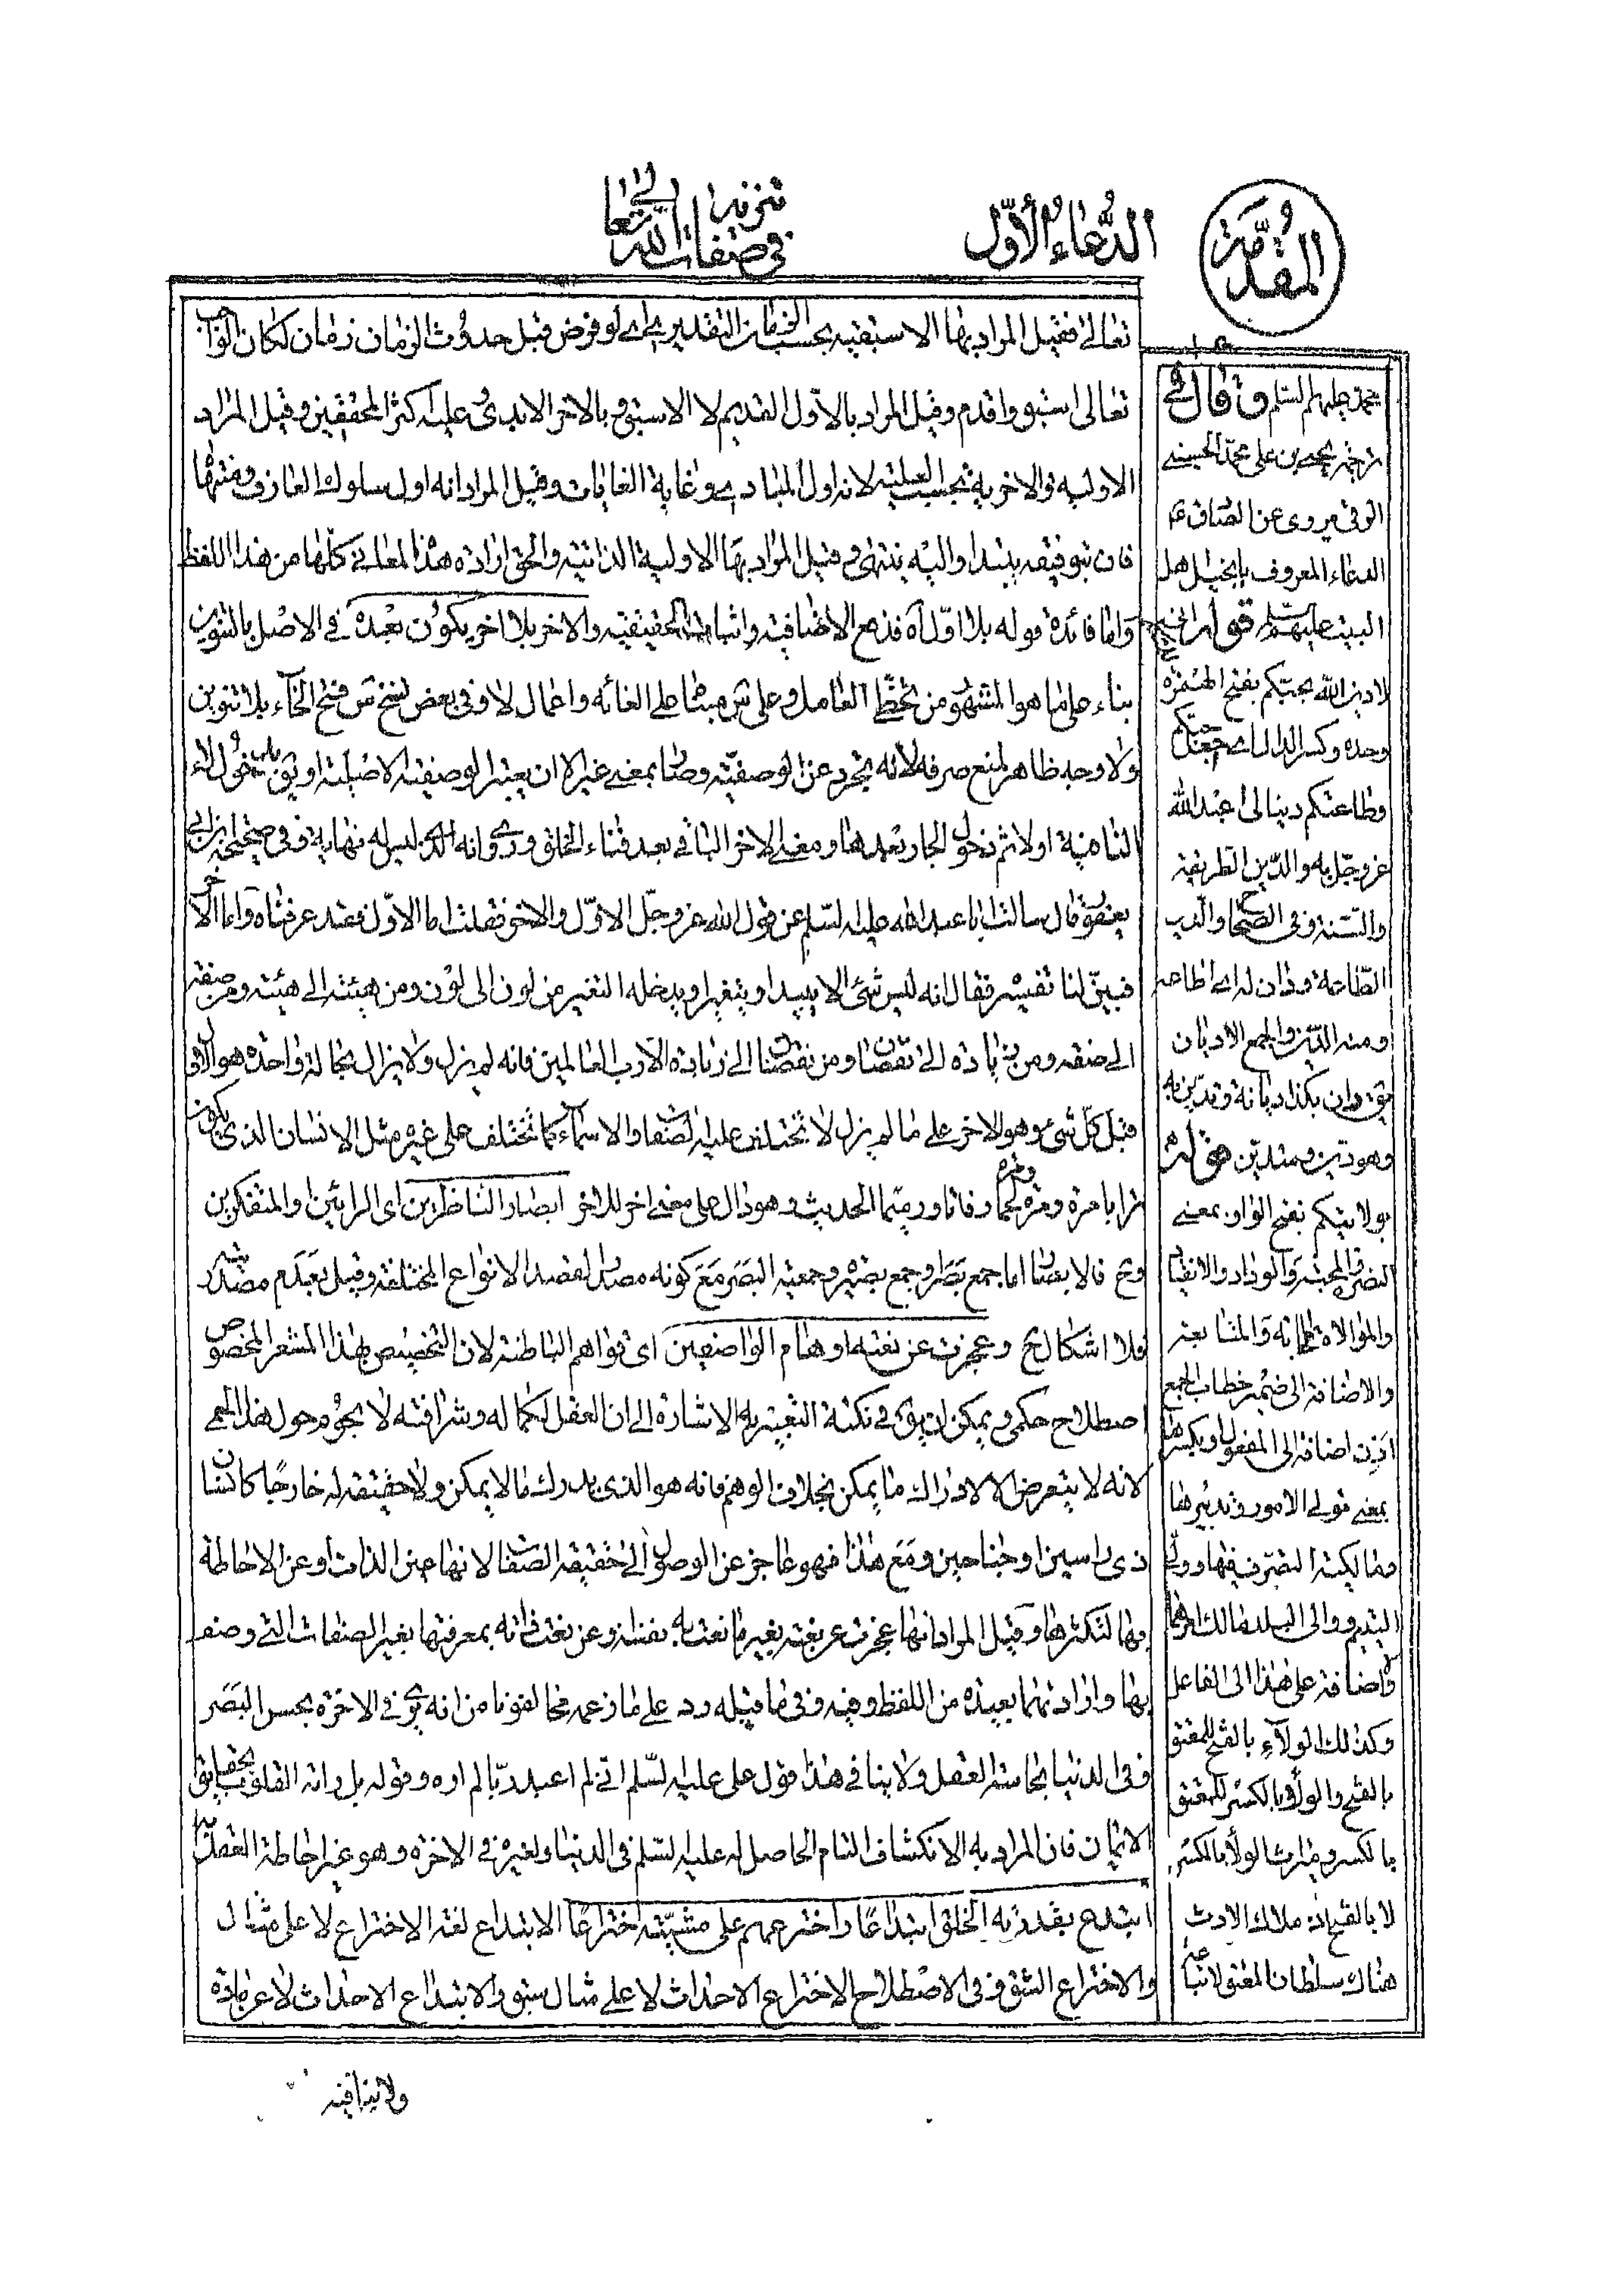 المقدمة
الدعاء الأول
في صفات الله تعالى
تعالى فقيل المراد بها الاسبقية بحسب الزمان التقديري اي لو فرض قبل حدوث الزمان زمان لكان الواجب
تعالى اسبق واقدم وقيل المراد بالاول القديم لا الاسبق وبالاخر الابدي وعليه اكثر المحققين وقيل المراد
الاولية والاخرية بحسب العلية لانه اول المبادي وغاية الغايات وقيل المراد انه اول سلوك العارف ومنتهاها
فان بتوفيقه يبتدا واليه ينتهي وقيل المراد بها الاولية الذاتية والحق ارادة هذه المعاني كلها من هذا اللفظ
واما فائدة قوله بلا اول اه فدفع الاضافية واثبات الحقيقية والاخر بلا اخر يكون بعده في الاصل بالتنوين
بناء على ما هو المشهور من تخطي العامل وعلى س مبنيا على الغائه واعمال لا وفي بعض نسخ س فتح الخاء بلا تنوين
ولا وجه ظاهر لمنع صرفه لانه تجرد عن الوصفية وصار بمعنى غير الا ان يعتبر الوصفية الاصلية او يق يلتزم دخول لاء
النافية اولا ثم دخول الجار بعدها ومعنى الاخر الباقي بعد فناء الخلق وروي انه الذي ليس له نهاية وفي صحيحة ابن ابي
يعفور قال سالت ابا عبد الله عليه السلم عن قول الله عز وجل الاول والاخر فقلت اما الاول فقد عرفناه واما الاخر
فبين لنا تفسيره فقال انه ليس شئ الا يبيد او يتغير او يدخله التغير من لون الى لون ومن هيئة الى هيئة ومن صفة
الى صفة ومن زيادة الى نقصان ومن نقصان الى زيادة الا رب العالمين فانه لم يزل ولا يزال بحالة واحدة هو الاول
قبل كل شئ وهو الاخر على ما لم يزل لا تختلف عليه الصفات والاسماء كما تختلف على غيره مثل الانسان الذي يكون
ترابا مرة ومرة لحما ومرة رفاتا ورميما الحديث وهو دال على معنى اخر للاخر ابصار الناظرين اي الرائين والمتفكرين
وح فالابصار اما جمع بصر او جمع بصيرة وجمعية البصر مع كونه مصدرا لقصد الانواع المختلفة وقيل بعدم مصدريته
فلا اشكال ح وعجزت عن نعته اوهام الواصفين اي قواهم الباطنة لان التخصيص بهذا المشعر المخصوص
اصطلاح حكمي ويمكن ان يق في نكتة التعبير به الاشارة الى ان العقل لكماله وشرافته لا يجوم حول هذا الحمى
لانه لا يتعرض الا لادراك ما يمكن بخلاف الوهم فانه هو الذي يدرك ما لا يمكن ولا حقيقة له خارجا كانسان
ذي راسين او جناحين ومع هذا فهو عاجز عن الوصول الى حقيقة الصفات لانها عين الذات او عن الاحاطة
بها لتكثرها وقيل المراد انها عجزت عن نعته بغير ما نعت به نفسه وعن نعت ذاته بمعرفتها بغير الصفات التي وصف
بها وارادتهما بعيدة من اللفظ وفيه وفي ما قبله رد على ما زعمه مخالفونا من انه يرى في الاخرة بحس البصر
وفي الدنيا بحاسة العقل ولا ينافي هذا قول علي عليه السلم اني لم اعبد ربا لم اره وقوله بل راته القلوب بحقايق
الايمان فان المراد به الانكشاف التام الحاصل له عليه السلم في الدنيا ولغيره في الاخرة وهو غير احاطة العقل به
ابتدع بقدرته الخلق ابتداعا واخترعهم على مشيته اختراعا الابتداع لغة الاختراع لا على مثال
والاختراع الشق وفي الاصطلاح الاختراع الاحداث لا على مثال سبق والابتداع الاحداث لا عن مادة
ولا ينافيه
محمد عليهم السلم وقال في
ترجمة يحيى بن علي محمد الحسيني
الرقي يروى عن الصادق ع
الدعاء المعروف بانجيل اهل
البيت عليهم السلم قوله
لا دين الله بحبكم بفتح الهمزة
وحده وكسر الدال اي جعل حبكم
وطاعتكم دينا لي اعبد الله
عز وجل به والدين الطريقة
والسنة وفي الصحاح والدين
الطاعة ودان له اي اطاعه
ومنه الدين والجمع الاديان
يق دان بكذا ديانة وتدين به
وهو دين ومتدين قوله
بولايتكم بفتح الواو بمعنى
النصرة والمحبة والوداد والانقياد
والموالاة والمتابعة
والاضافة الى ضمير خطاب الجمع
اذن اضافة الى المفعول وبكسرها
بمعنى تولي الامور وتدبيرها
ومالكية التصرف فيها وولي
اليتيم ووالي البلد مالك امرهما
واضافة على هذا الى الفاعل
وكذلك الولاء بالفتح للمعتق
بالفتح والولاء بالكسر للمعتق
بالكسر وميراث الولاء بالكسر
لا بالفتح لانه ملاك الارث
هناك سلطان المعتق لاتباعه